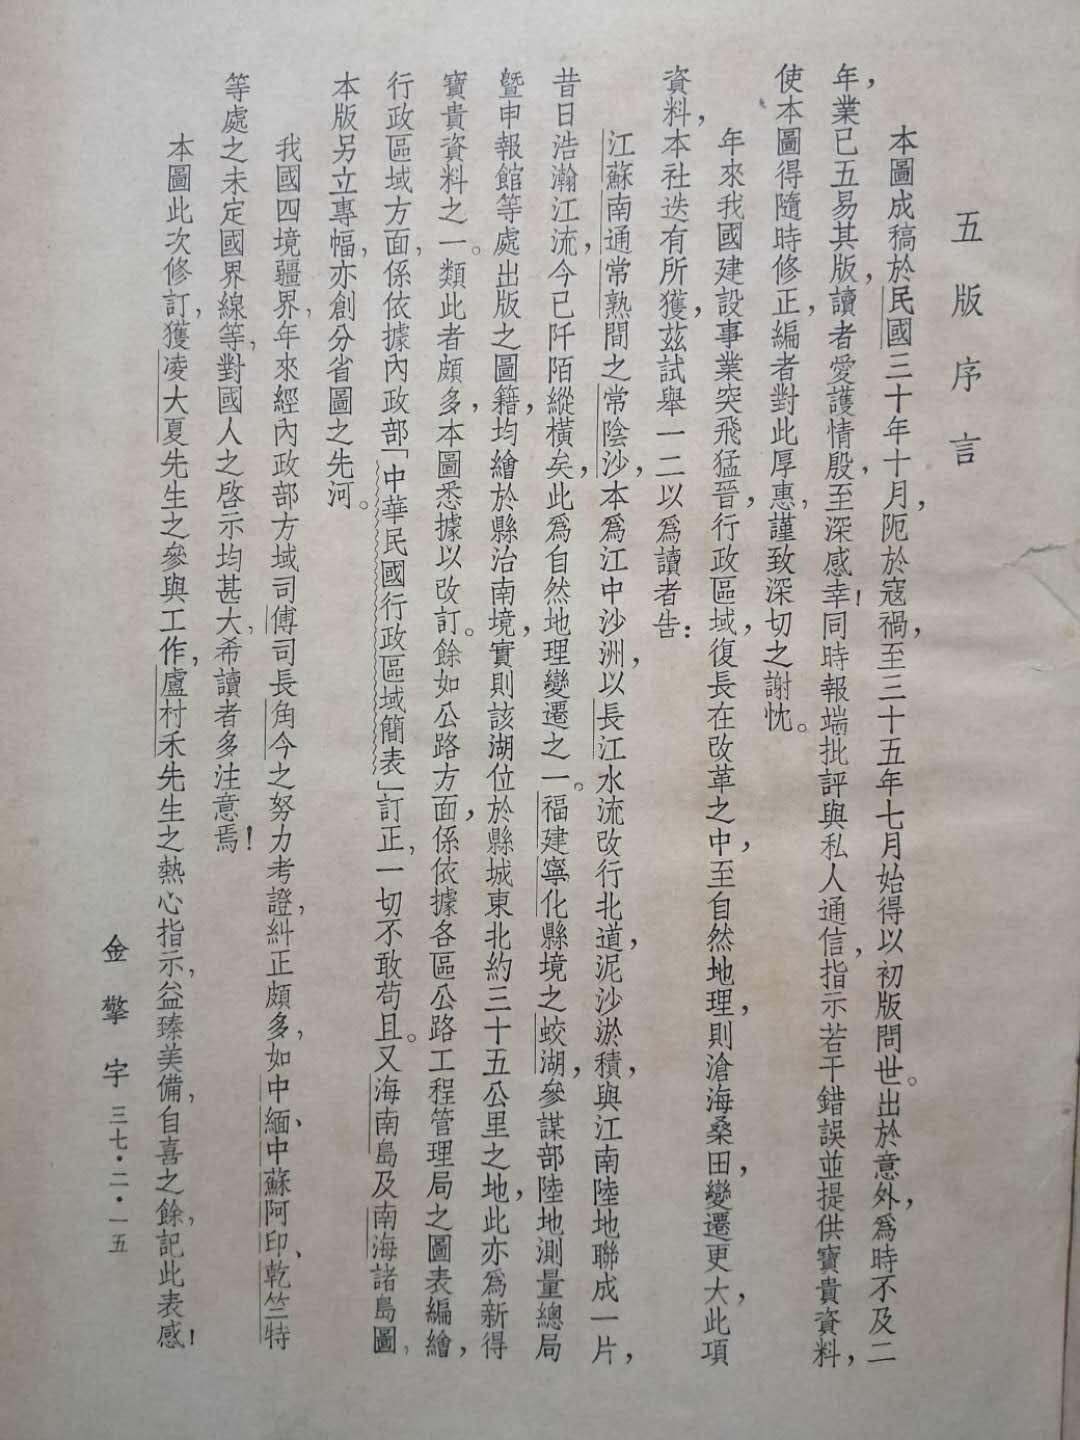 五版序言
本圖成稿於民國三十年十月，阨於寇禍，至三十五年七月始得以初版問世。出於意外，爲時不及二
年，業已五易其版，讀者愛護情殷，至深感幸！同時報端批評與私人通信，指示若干錯誤並提供寶貴資料，
使本圖得隨時修正，編者對此厚惠，謹致深切之謝忱。
年來我國建設事業突飛猛晉，行政區域，復長在改革之中，至自然地理，則滄海桑田，變遷更大，此項
資料，本社迭有所獲，茲試舉一二以爲讀者告：
江蘇南通常熟間之常陰沙，本爲江中沙洲，以長江水流改行北道，泥沙淤積，與江南陸地聯成一片，
昔日浩瀚江流，今已阡陌縱橫矣，此爲自然地理變遷之一。福建寧化縣境之蛟湖，參謀部陸地測量總局
曁申報館等處出版之圖籍，均繪於縣治南境，實則該湖位於縣城東北約三十五公里之地，此亦爲新得
寶貴資料之一。類此者頗多，本圖悉據以改訂。餘如公路方面，係依據各區公路工程管理局之圖表編繪，
行政區域方面，係依據內政部「中華民國行政區域簡表」訂正，一切不敢苟且。又海南島及南海諸島圖，
本版另立專幅，亦創分省圖之先河。
我國四境疆界，年來經內政部方域司傅司長角今之努力考證，糾正頗多，如中緬、中蘇阿印、乾竺特
等處之未定國界線等，對國人之啓示均甚大，希讀者多注意焉！
本圖此次修訂，獲凌大夏先生之參與工作，盧村禾先生之熱心指示，益臻美備，自喜之餘，記此表感！
金擎宇 三七·二·一五